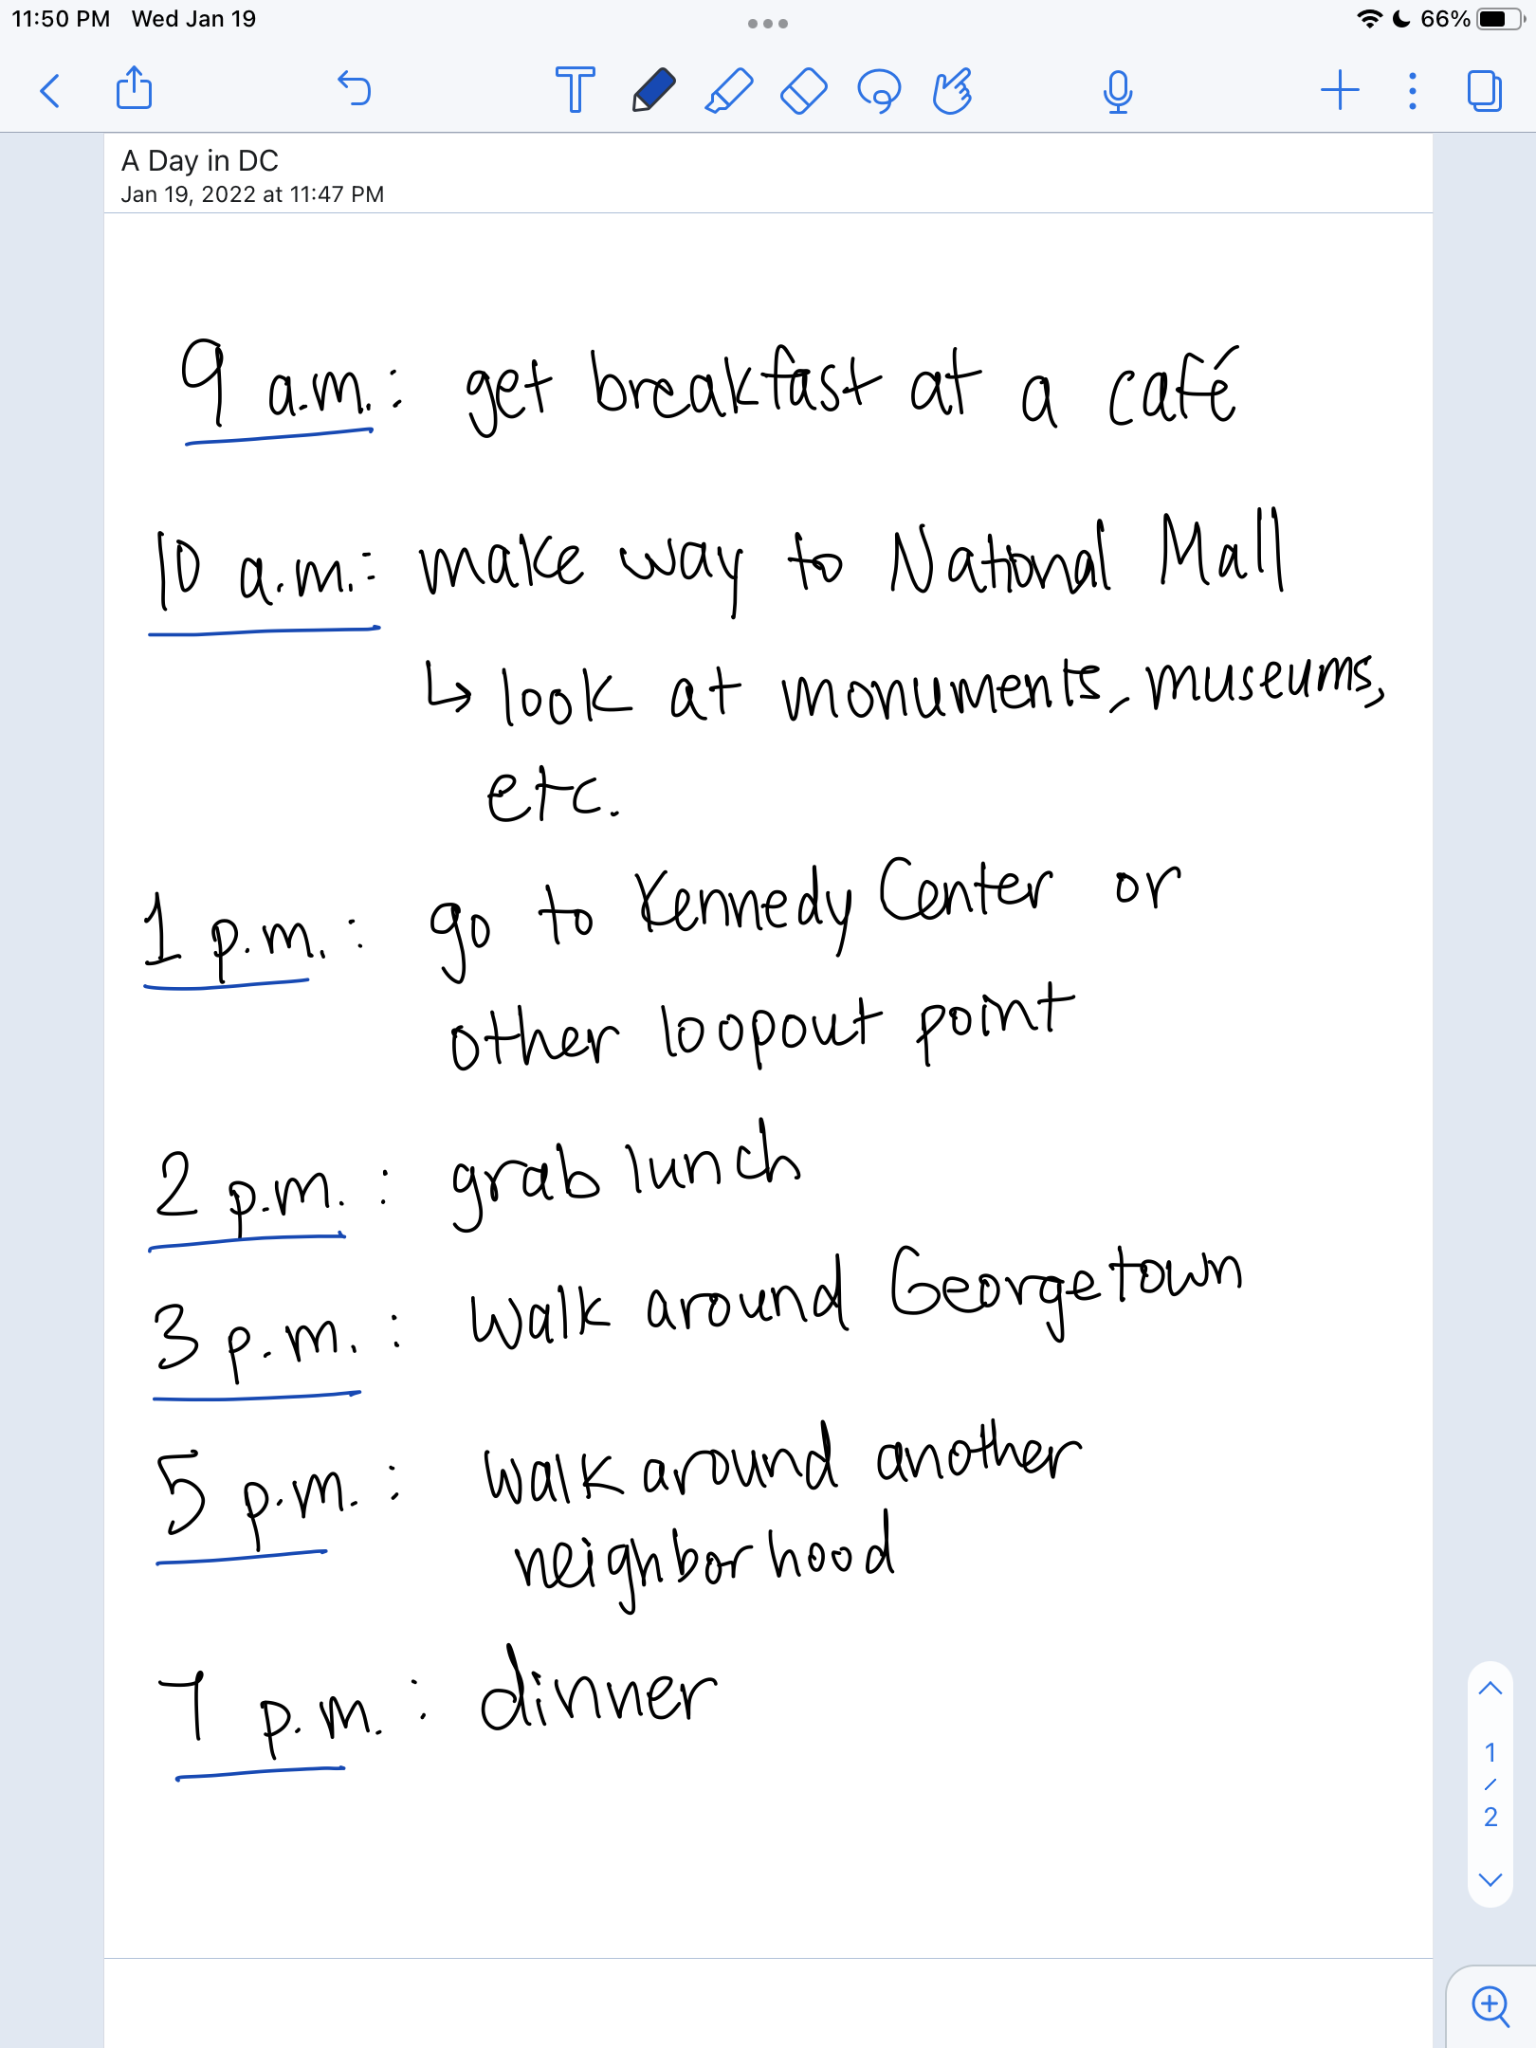 11:50 PM Wed Jan 19 66%
T
A Day in DC
Jan 19, 2022 at 11:47 PM
9 a.m.: get breakfast at a café
10 a.m.: make way to National Mall
↳ look at monuments, museums,
etc.
1 p.m.: go to Kennedy Center or
other loopout point
2 p.m.: grab lunch
3 p.m.: walk around Georgetown
5 p.m.: walk around another
neighborhood
7 p.m.: dinner
1
/
2